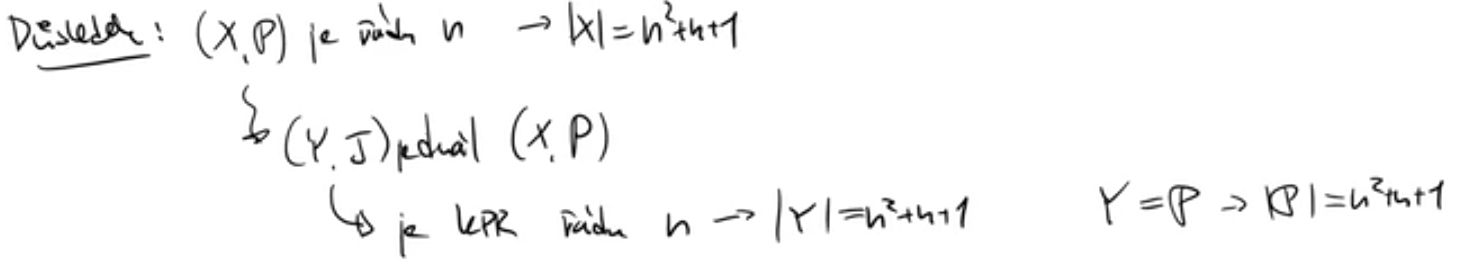 Důsledek: (X,P) je řádu n → |X|=n²+n+1
(Y,J) je duál (X,P)
je KPR řádu n → |Y|=n²+n+1 Y=P → |P|=n²+n+1